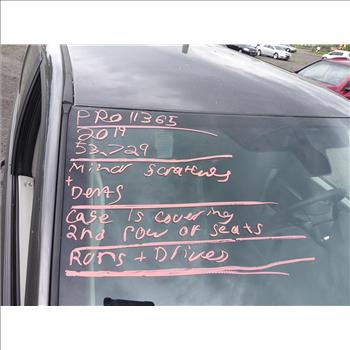 PRO11365
2019
53,729
Minor scratches
+
Dents
Case is covering
2nd row of seats
Runs + Drives